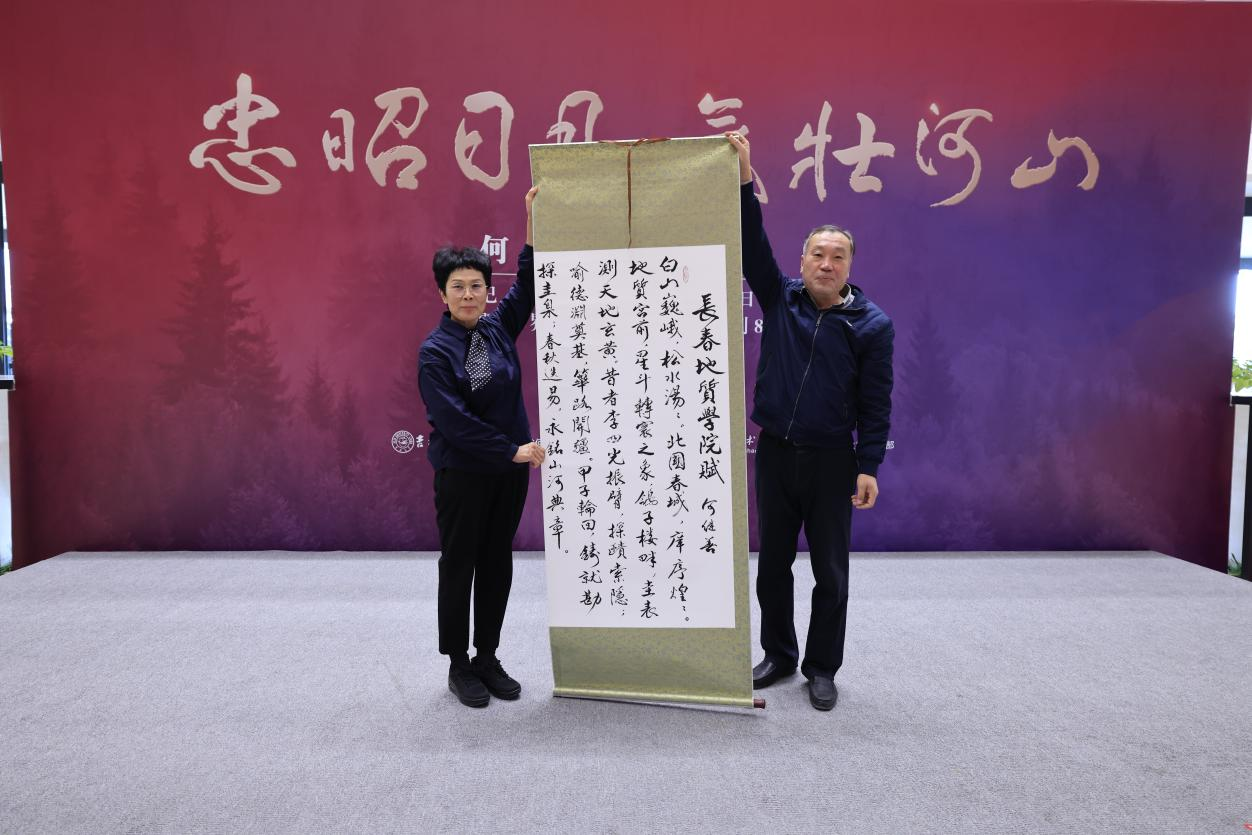 忠昭日月 气壮河山
何
日
8
吉
術
部
長春地質學院賦 何继善
白山巍峨，松水湯〻。北國春城，庠序煌〻。
地質宫前，星斗轉寰之象，鴿子楼畔，圭表
测天地玄黄。昔者李四光振臂，探賾索隐；
喻德淵奠基，筚路開疆。甲子輪回，鑄就勘
探圭臬；春秋迭易，永銘山河典章。